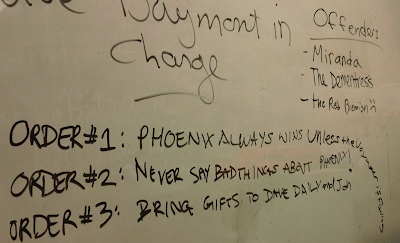 Payment in
Charge
Offenders
- Miranda
- The Dementress
- the Red
ORDER #1: PHOENIX ALWAYS WINS Unless the Voyager is Flying
ORDER #2: NEVER SAY BAD THINGS ABOUT PHOENIX!
ORDER #3: BRING GIFTS TO DAVE DAILY and Jon